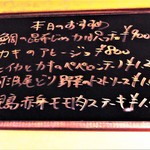 本日のおすすめ
鯛の昆布じめカルパッチョ ¥900
カキのアヒージョ ¥800
イカとカキのペペロンチーノ ¥1
どり 野菜のトマトソース ¥1
赤身モモ肉ステーキ ¥1